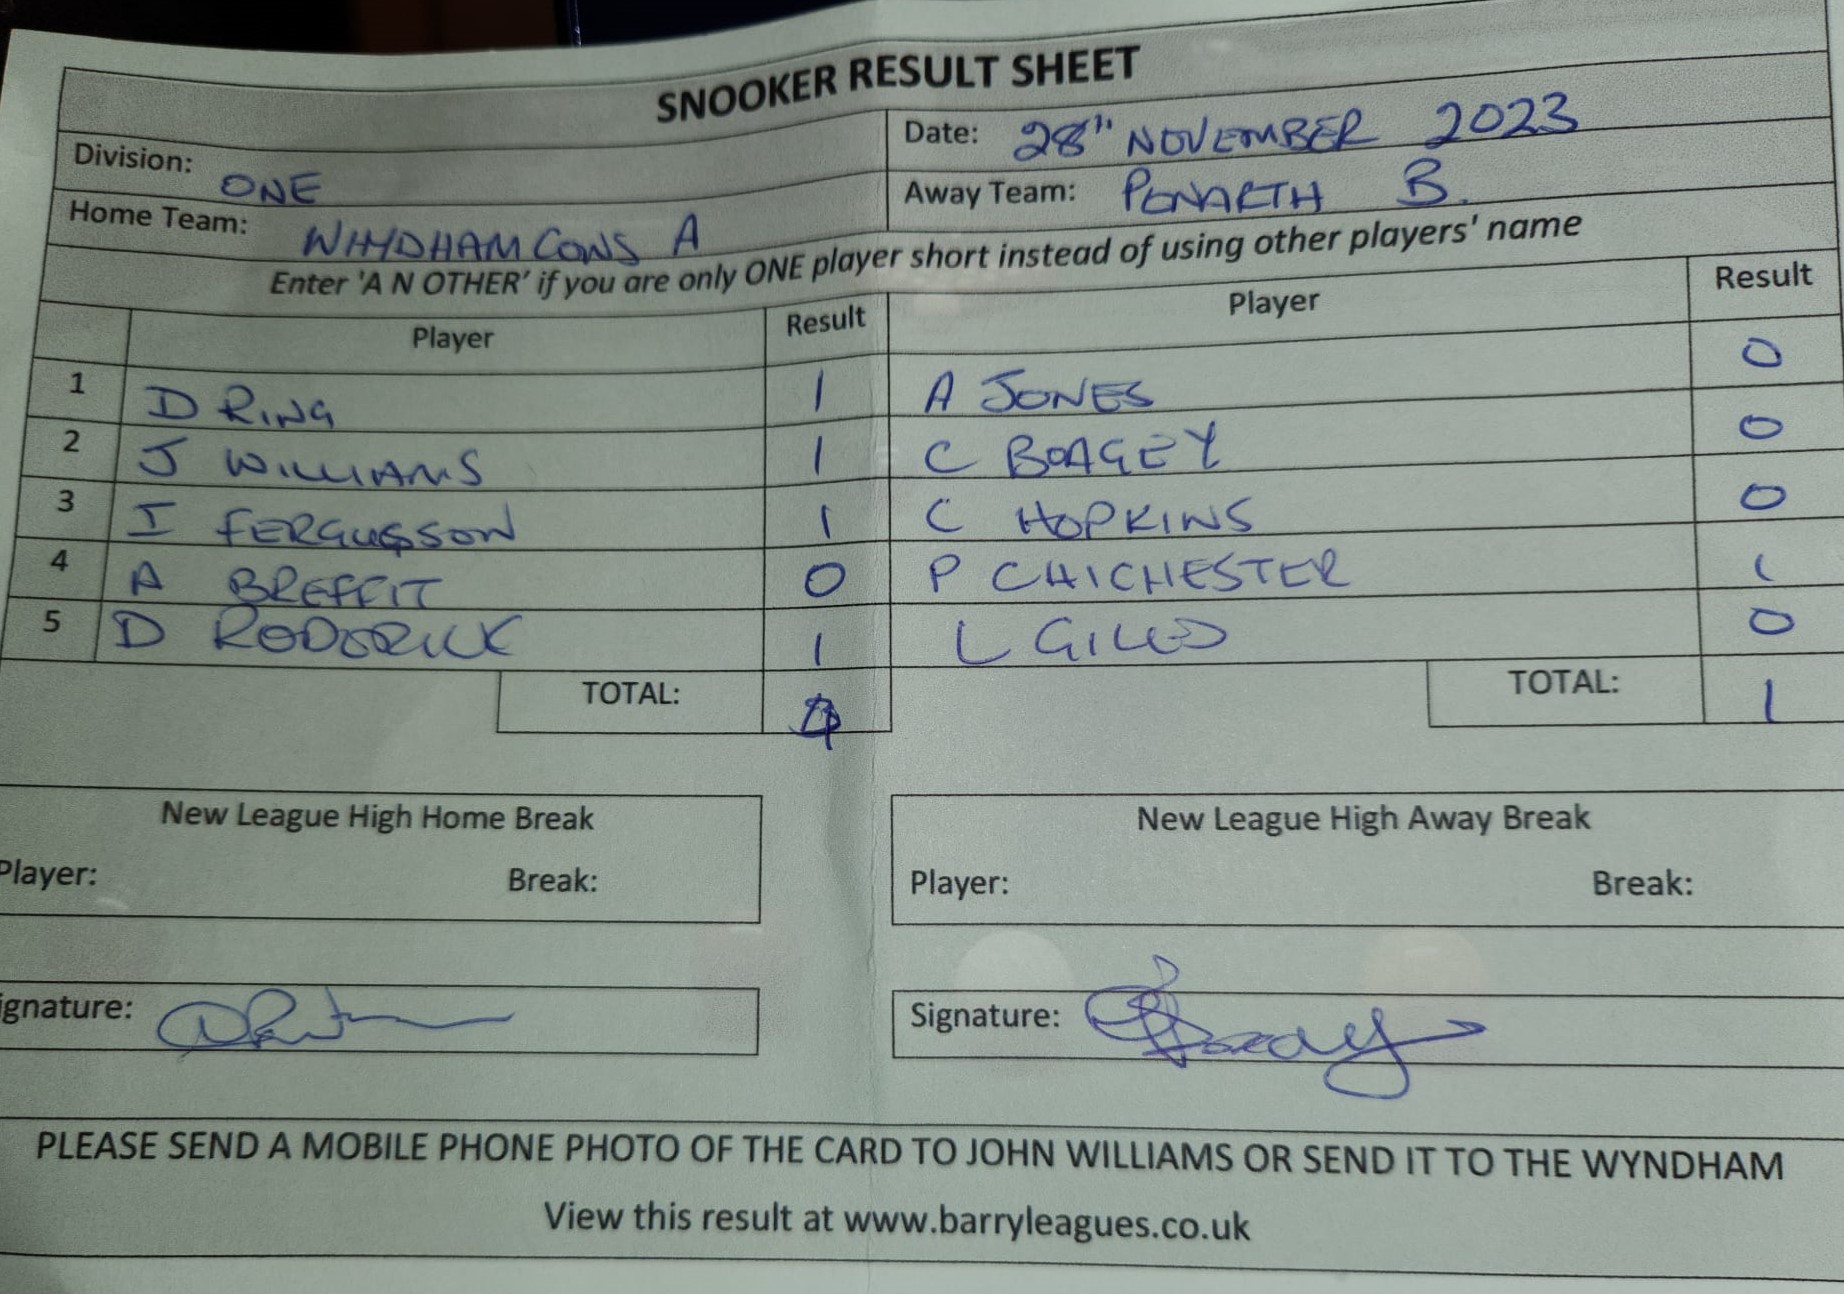 SNOOKER RESULT SHEET
Division: ONE Date: 28TH NOVEMBER 2023
Home Team: WHYDHAM CONS A Away Team: PENARTH B.
Enter 'A N OTHER' if you are only ONE player short instead of using other players' name
Player Result Player Result
1 D RING 1 A JONES 0
2 J WILLIAMS 1 C BOAGEY 0
3 I FERGUSSON 1 C HOPKINS 0
4 A BREFFIT 0 P CHICHESTER 1
5 D RODERICK 1 L GILES 0
TOTAL: 4 TOTAL: 1
New League High Home Break New League High Away Break
Player: Break: Player: Break:
ignature: Signature:
PLEASE SEND A MOBILE PHONE PHOTO OF THE CARD TO JOHN WILLIAMS OR SEND IT TO THE WYNDHAM
View this result at www.barryleagues.co.uk